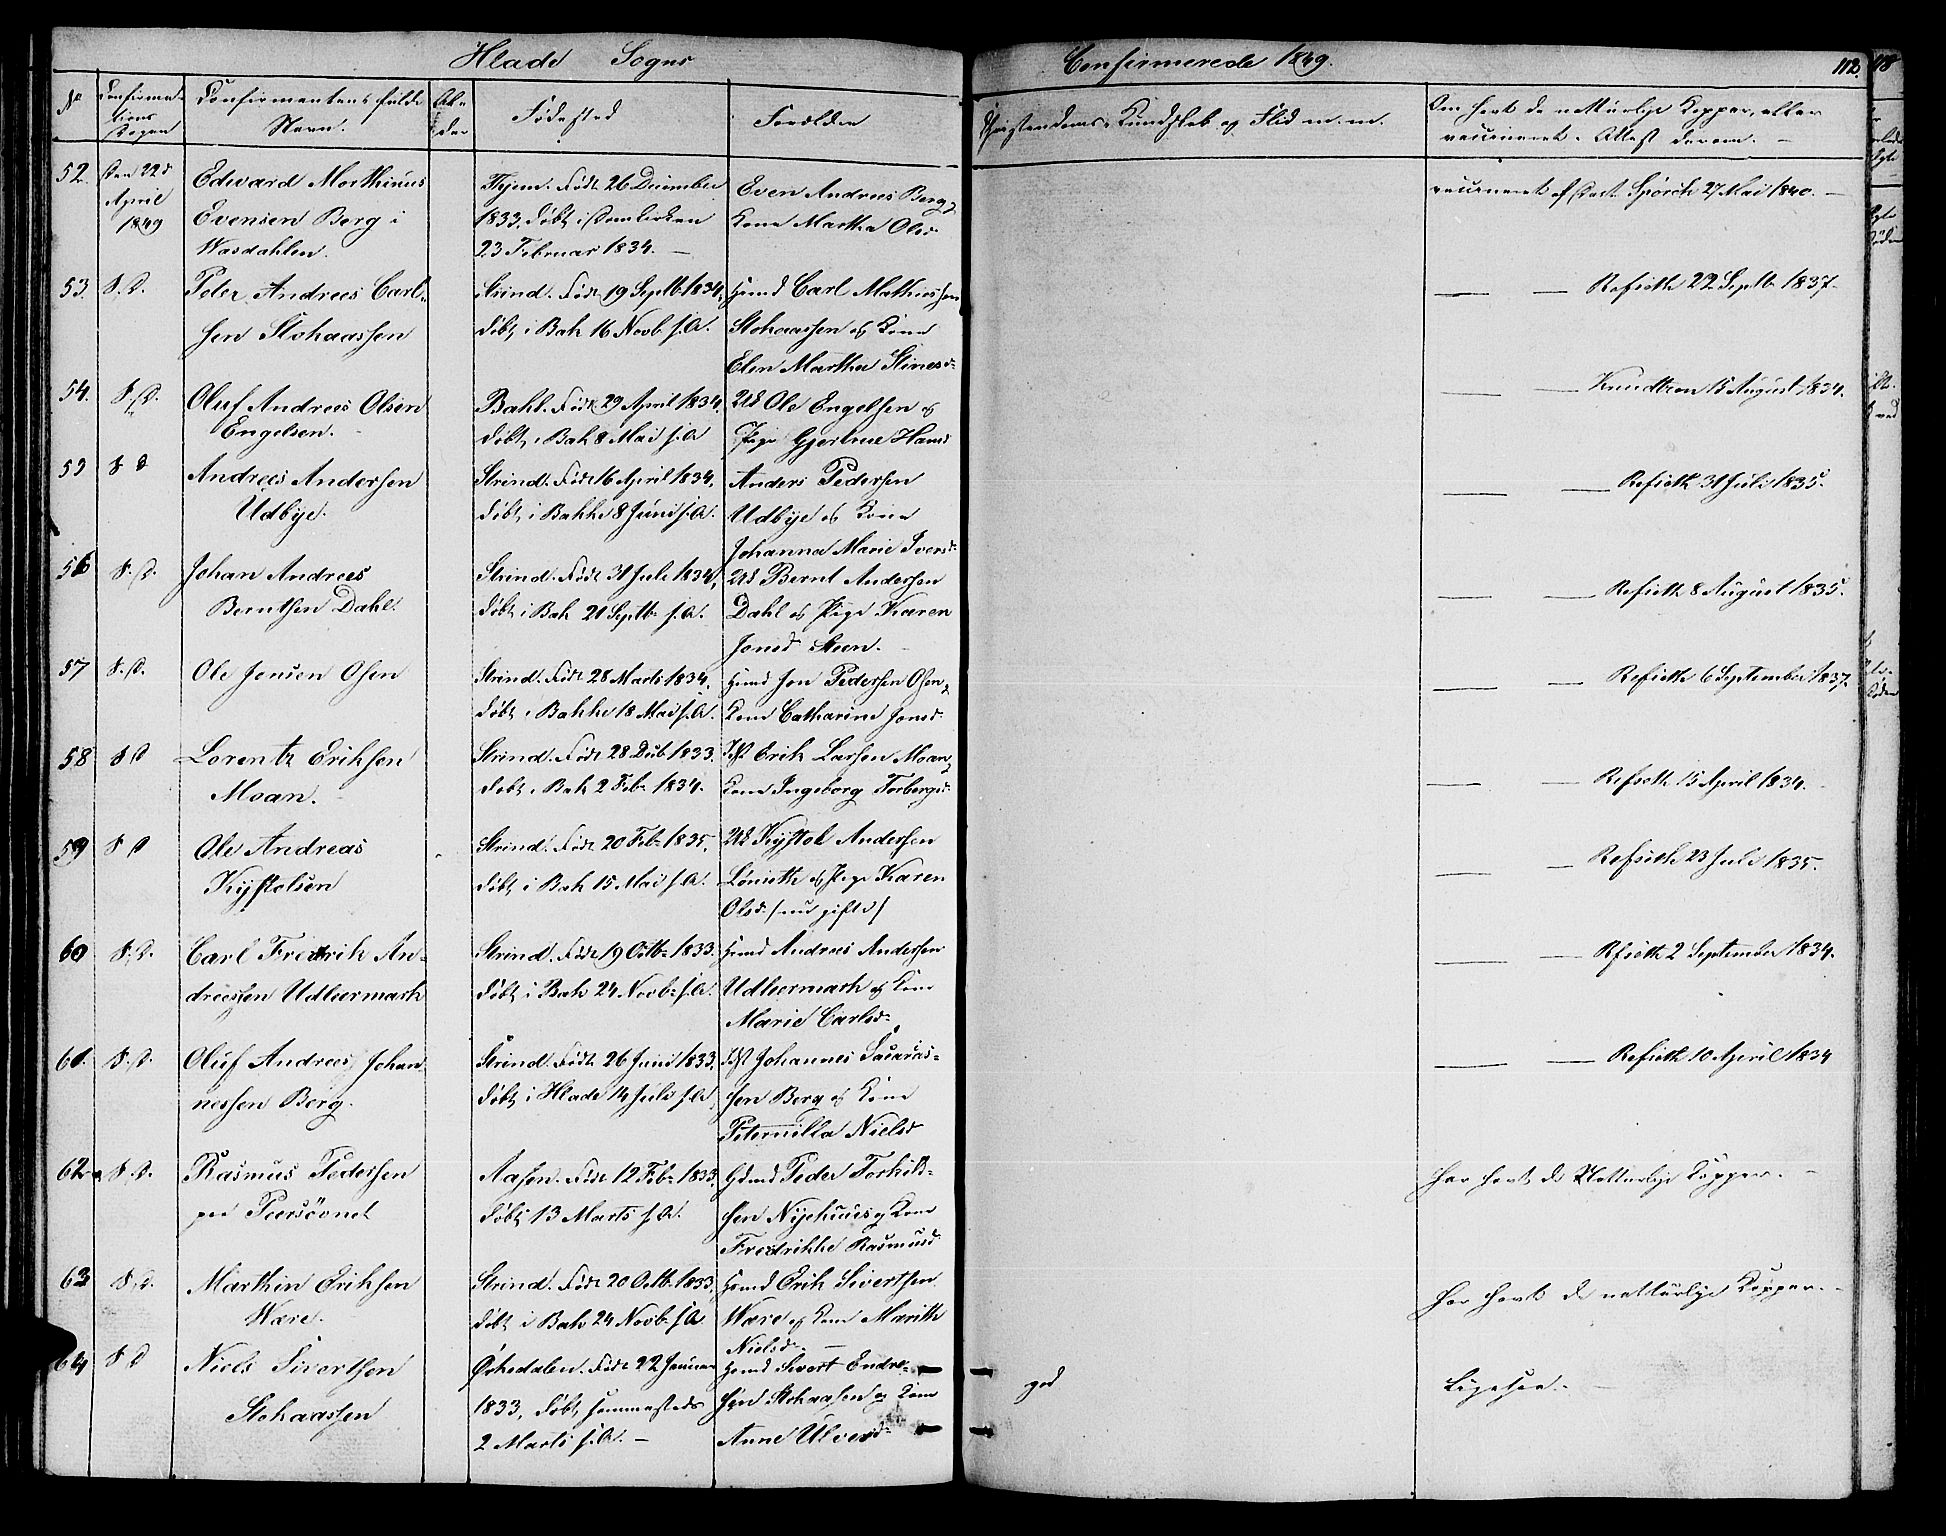 Hlade Sogns
Confirmerede 1849.
112.
118
No
Confirma-
tions
Dagen
Confirmantens fulde
Navn.
Al-
der
Fødested
Forældre
Christendoms Kundskab og Flid m. m.
Om havt de naturlige Kopper, eller
vaccineret. Attest derom. —
52.
Den 22d
April
1849
Edward Morthinus
Evensen Berg i
Wasdahlen.
Thjem. Født 26 December
1833, døbt i Domkirken
23 Februar 1834. —
Even Andreas Berg &
Kone Martha Olsd.
vaccineret af Cast. Spörck 27 Mai 1840. —
53.
S. D.
Peter Andreas Carl-
sen Stohaassen
Strind. Født 19 Septb. 1834,
døbt i Bak 16 Novb. s. A.
Huusmd Carl Mathiassen
Stohaassen og Kone
Elen Martha Stinesd.
— — Refseth 22 Septb. 1837.
54.
S. D.
Oluf Andreas Olsen
Engelsen.
Bakl. Født 29 April 1834,
døbt i Bak 8 Mai s. A.
Ole Engelsen og
Pige Gjertrue Hansd
— — Knudtzon 15 August 1834.
55
S D
Andreas Andersen
Udbye.
Strind. Født 16 April 1834,
døbt i Bakke 8 Juni s. A.
Anders Pedersen
Udbye og Kone
Johanna Marie Iversd.
— — Refseth 31 Juli 1835.
56
S. D.
Johan Andreas
Berntsen Dahl.
Strind. Født 31 Juli 1834,
døbt i Bak 21 Septb. s. A.
Bernt Andersen
Dahl og Pige Karen
Jonsd Steen.
— — Refseth 8 August 1835.
57
S. D.
Ole Jensen Osen
Strind. Født 28 Marts 1834,
døbt i Bakke 18 Mai s. A.
Huusmd Jon Pedersen Osen &
Kone Catharina Jonsd.
— — Refseth 6 September 1837.
58
S D
Lorentz Eriksen
Moan.
Strind. Født 28 Decb 1833.
døbt i Bak 2 Feb. 1834.
Inst Erik Larsen Moan &
Kone Ingeborg Torbergsd.
— — Refseth 15 April 1834.
59
S D
Ole Andreas
Kystolsen
Strind. Født 20 Feb. 1835,
døbt i Bak 15 Mai s. A.
Kystol Andersen
Lønseth og Pige Karen
Olsd. /nu gifte/
— — Refseth 23 Juli 1835.
60
S. D.
Carl Fredrik An-
dreesen Udleermark
Strind. Født 19 Octb. 1833.
døbt i Bak 24 Novb. s. A.
Huusmd Andreas Andersen
Udleermark og Kone
Marie Carlsd.
— — Refseth 2 September 1834.
61.
S. D.
Oluf Andreas Johan
nessen Berg.
Strind. Født 26 Juni 1833,
døbt i Hlade 14 Juli s. A.
Inst Johannes Sacarias-
sen Berg og Kone
Peternilla Nielsd
— — Refseth 10 April 1834
62
S. D.
Rasmus Pedersen
paa Peersövnet
Aasen. Født 12 Feb. 1833,
døbt 13 Marts s. A.
Gdmd Peder Torkils-
sen Nyehuus og Kone
Fredrikke Rasmusd
har havt de Naturlige Kopper. —
63
S. D.
Marthin Eriksen
Være.
Strind. Født 20 Octb. 1833,
døbt i Bak 24 Novb. s. A
Huusmd Erik Sivertsen
Være og Kone Marith
Nielsd. —
har havt de naturlige Kopper. —
64
S D
Niels Sivertsen
Stohaassen
Örkedalen. Født 22 Januar
1833, døbt sammesteds
2 Marts s. A. —
Huusmd Sivert Endre-
sen Stohaasen og Kone
Anne Ulvesd.
god
Ligesaa. —